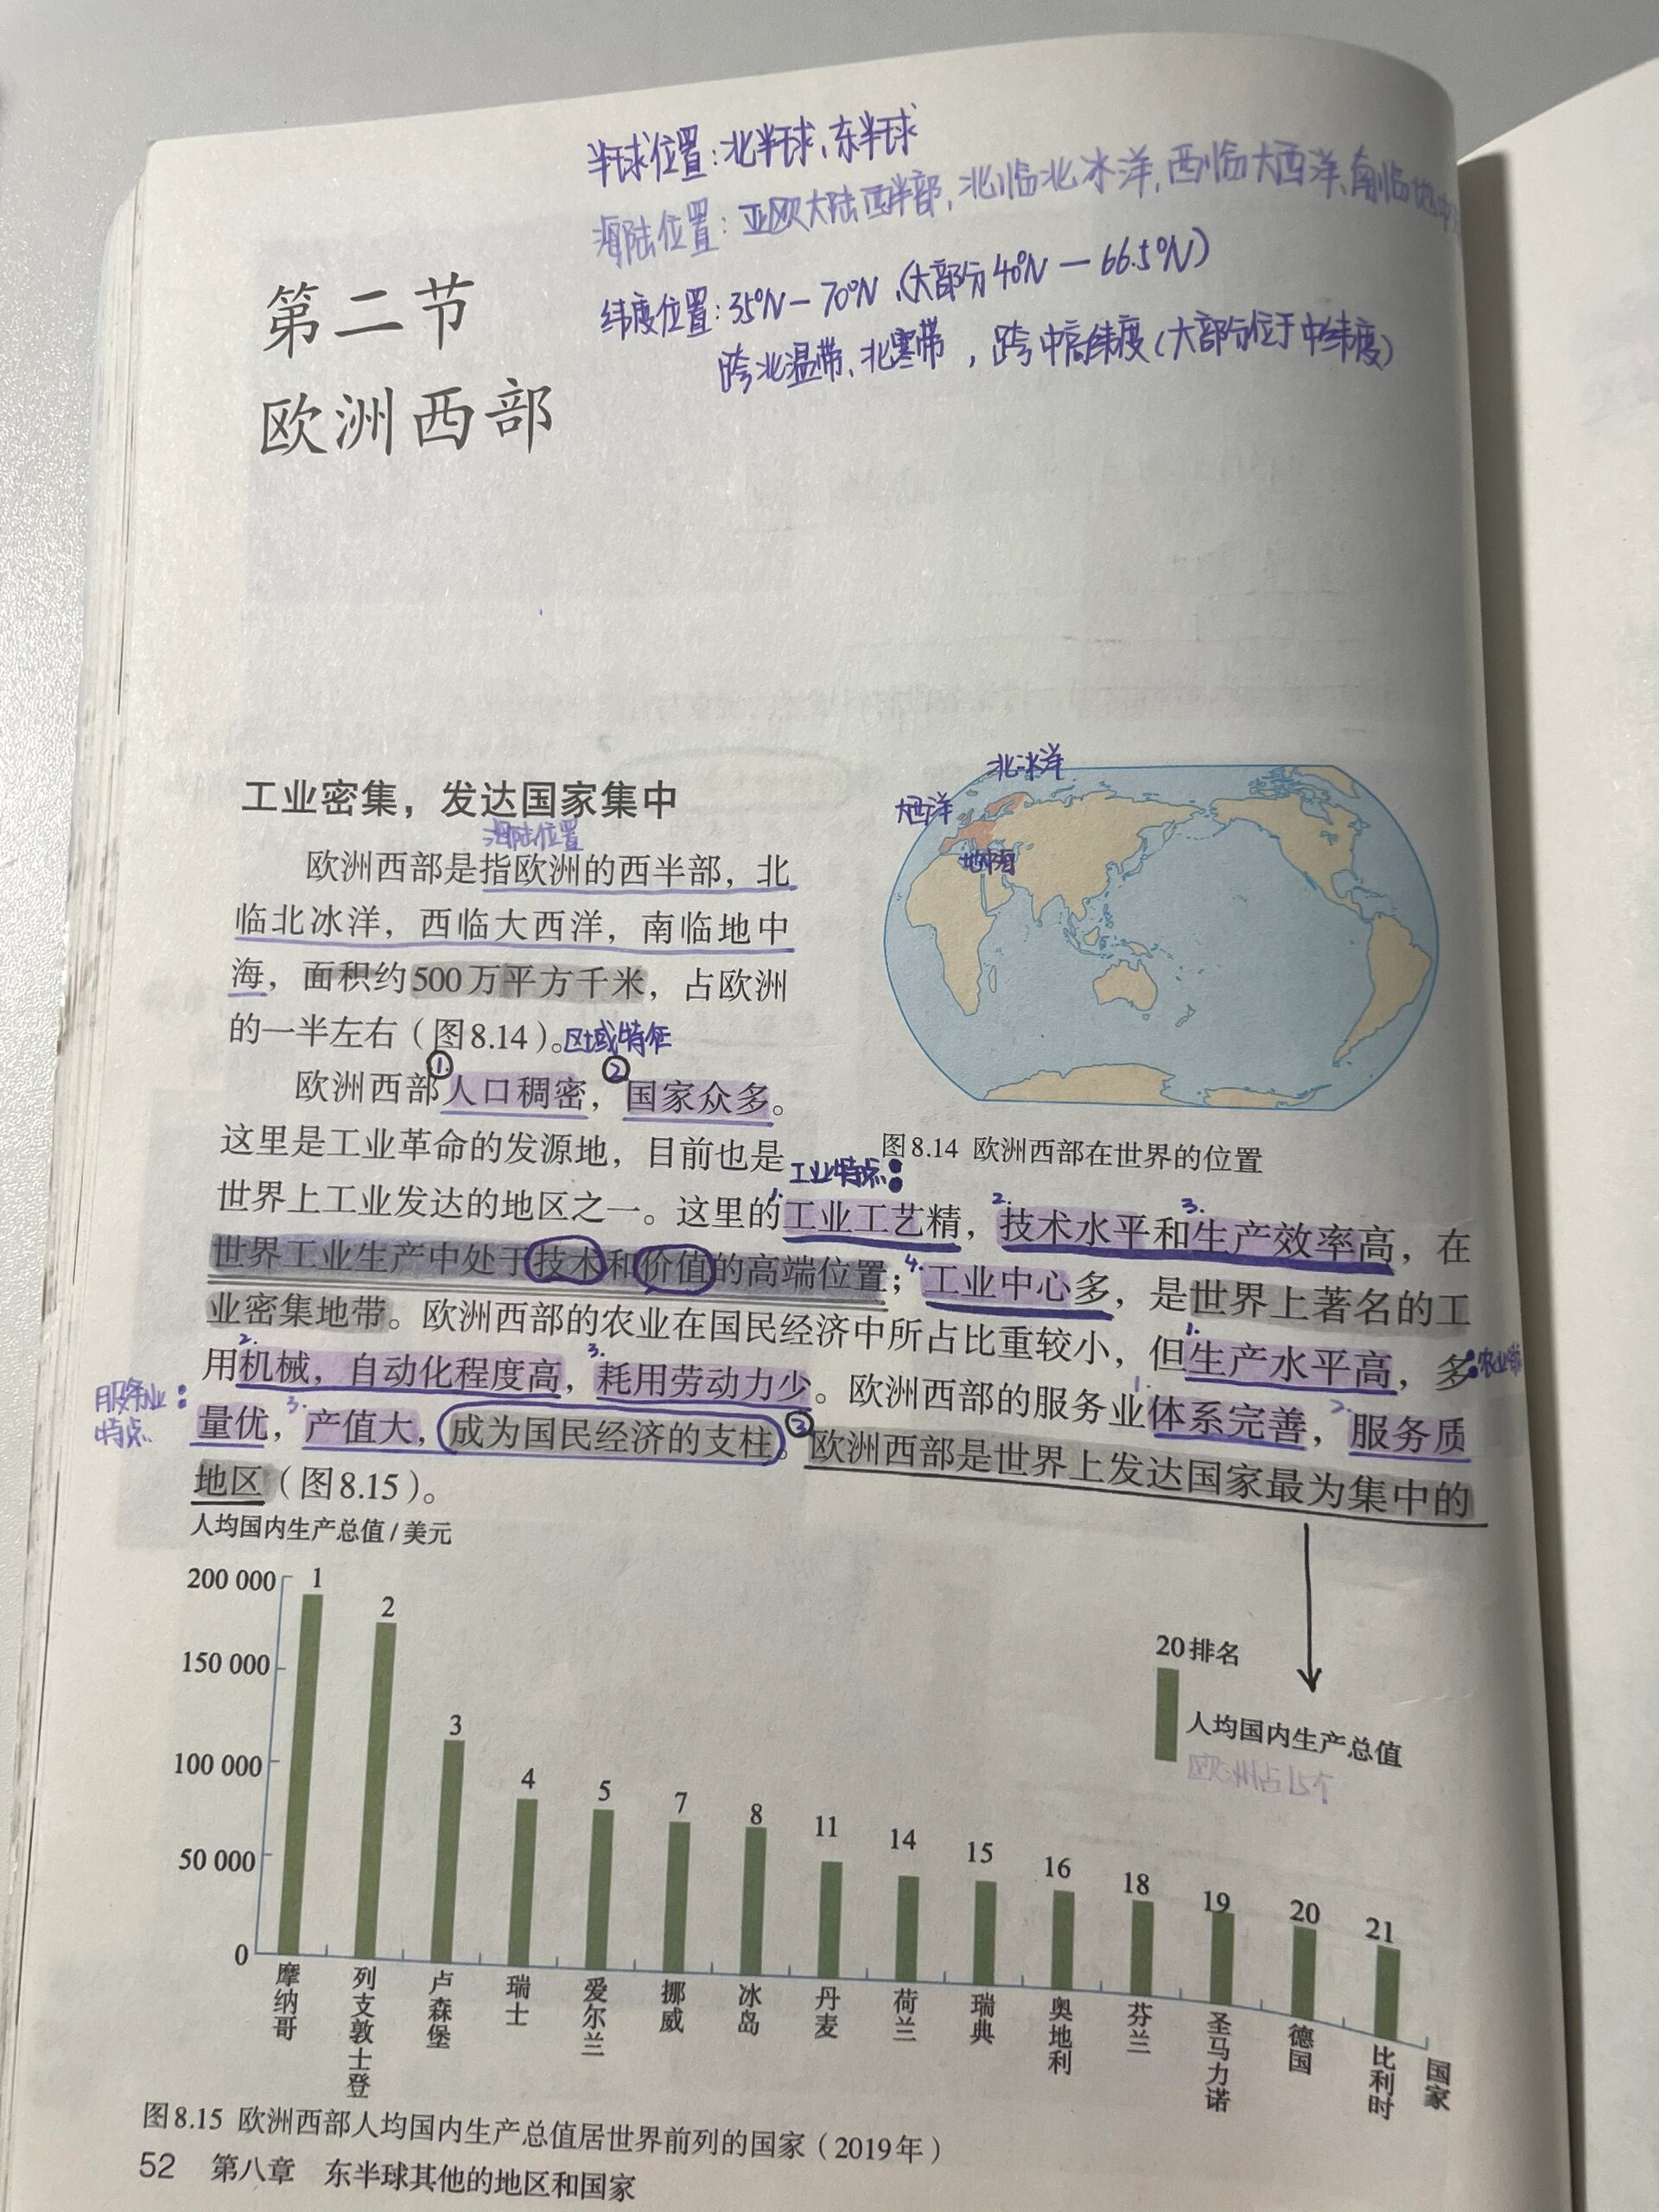 半球位置：北半球、东半球
海陆位置：亚欧大陆西半部，北临北冰洋，西临大西洋，南临地中
纬度位置：35°N－70°N、(大部分40°N－66.5°N)
跨北温带、北寒带，跨中高纬度(大部分位于中纬度)
第二节
欧洲西部
工业密集，发达国家集中
海陆位置
欧洲西部是指欧洲的西半部，北
临北冰洋，西临大西洋，南临地中
海，面积约500万平方千米，占欧洲
的一半左右（图8.14）。区域特征
① ②
欧洲西部人口稠密，国家众多。
这里是工业革命的发源地，目前也是
北冰洋
大西洋
地中海
图8.14 欧洲西部在世界的位置
工业特点：
世界上工业发达的地区之一。这里的1.工业工艺精，2.技术水平和3.生产效率高，在
世界工业生产中处于技术和价值的高端位置；4.工业中心多，是世界上著名的工
业密集地带。欧洲西部的农业在国民经济中所占比重较小，但1.生产水平高，多
农业
用2.机械，自动化程度高，3.耗用劳动力少。欧洲西部的服务业1.体系完善，2.服务质
服务业：
特点
量优，3.产值大，成为国民经济的支柱。③欧洲西部是世界上发达国家最为集中的
地区（图8.15）。
人均国内生产总值/美元
200 000
150 000
100 000
50 000
0
1 2 3 4 5 7 8 11 14 15 16 18 19 20 21
20 排名
人均国内生产总值
欧洲占15个
摩纳哥
列支敦士登
卢森堡
瑞士
爱尔兰
挪威
冰岛
丹麦
荷兰
瑞典
奥地利
芬兰
圣马力诺
德国
比利时
国家
图8.15 欧洲西部人均国内生产总值居世界前列的国家（2019年）
52 第八章 东半球其他的地区和国家